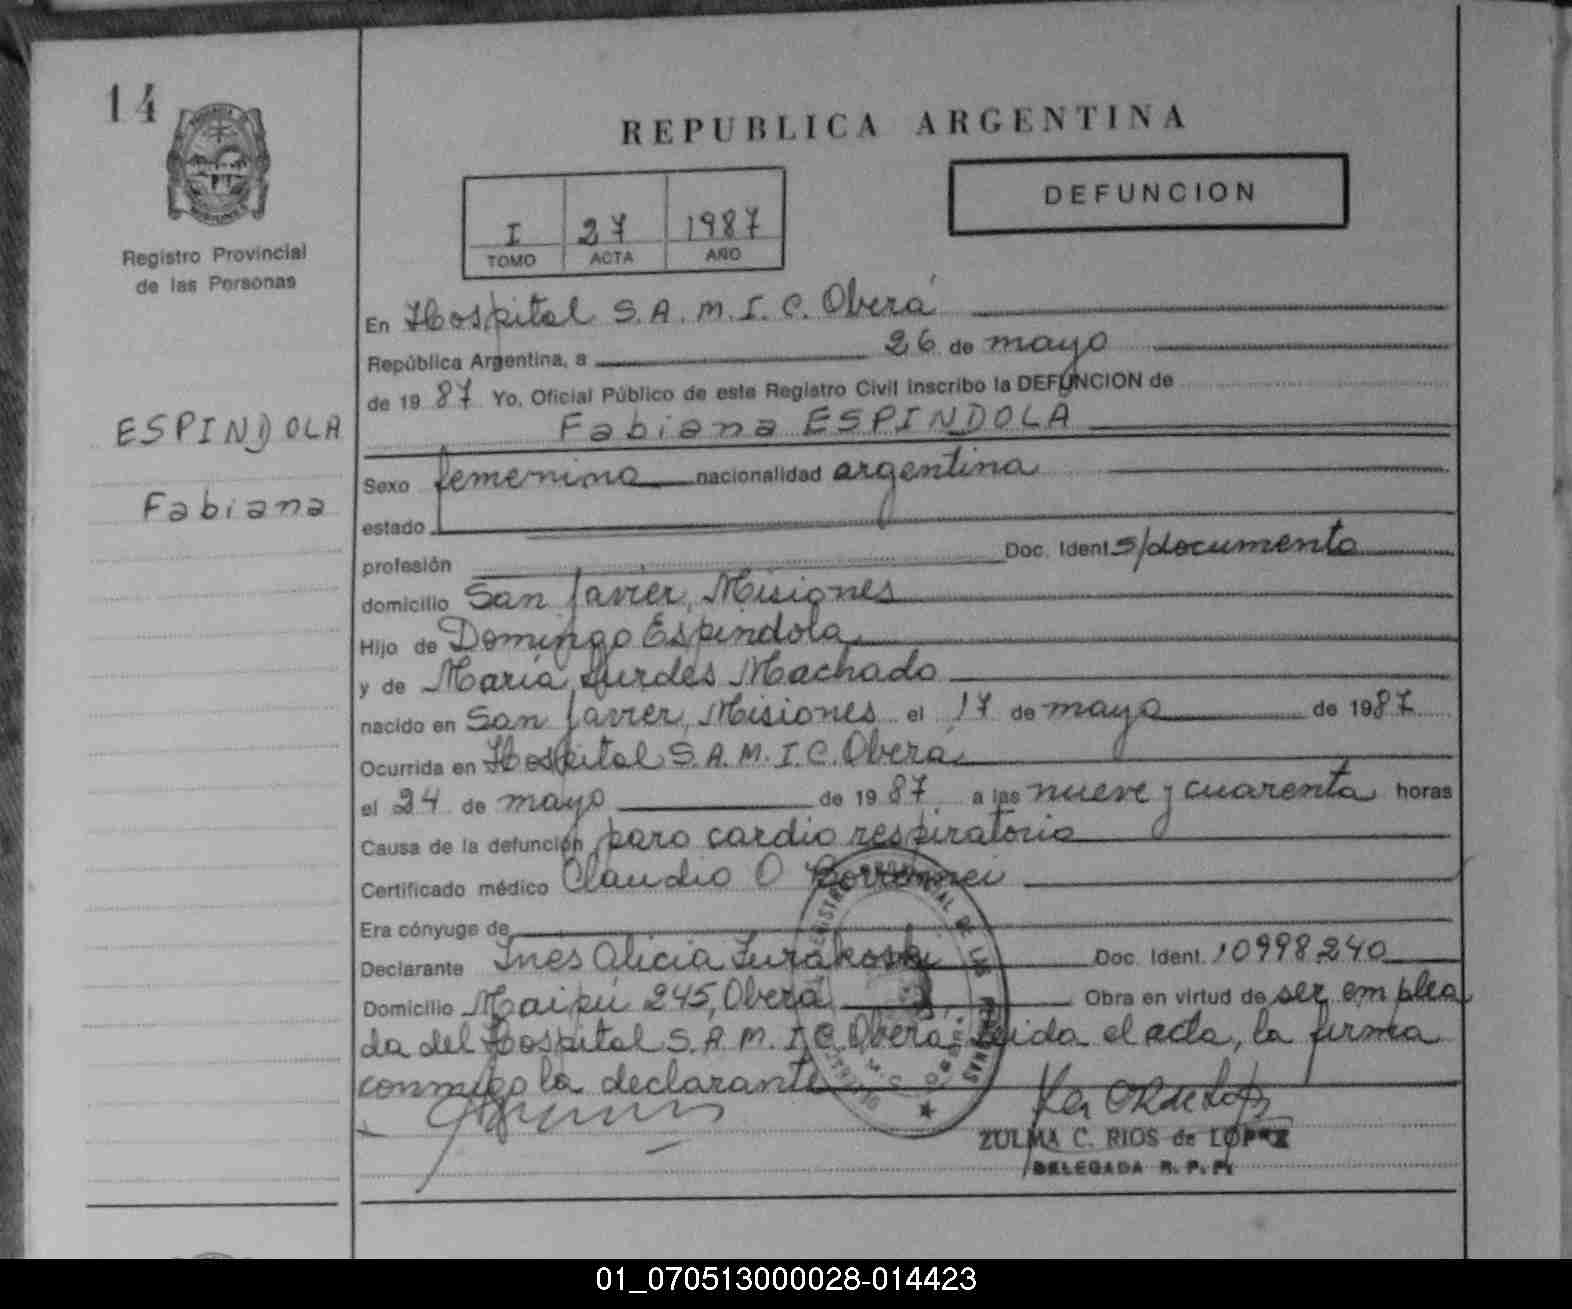 14
REPUBLICA ARGENTINA
DEFUNCION
I 27 1987
TOMO ACTA AÑO
Registro Provincial
de las Personas
ESPINDOLA
Fabiana
En Hospital S.A.M.I.C. Oberá
República Argentina, a 26 de mayo
de 1987 Yo, Oficial Público de este Registro Civil inscribo la DEFUNCION de
Fabiana ESPINDOLA
Sexo femenino nacionalidad argentina
estado
profesión Doc. Ident. s/documento
domicilio San Javier, Misiones
Hijo de Domingo Espindola
y de María Lurdes Machado
nacido en San Javier, Misiones el 17 de mayo de 1987
Ocurrida en Hospital S.A.M.I.C. Oberá
el 24 de mayo de 1987 a las nueve y cuarenta horas
Causa de la defunción paro cardio respiratorio
Certificado médico Claudio O
Era cónyuge de
Declarante Ines Alicia Doc. Ident. 10998240
Domicilio Maipú 245, Oberá Obra en virtud de ser emplea
da del Hospital S.A.M.I.C. Oberá; Leida el acta, la firma
conmigo la declarante
ZULMA C. RIOS de LOPEZ
DELEGADA R. P. P.
01_070513000028-014423